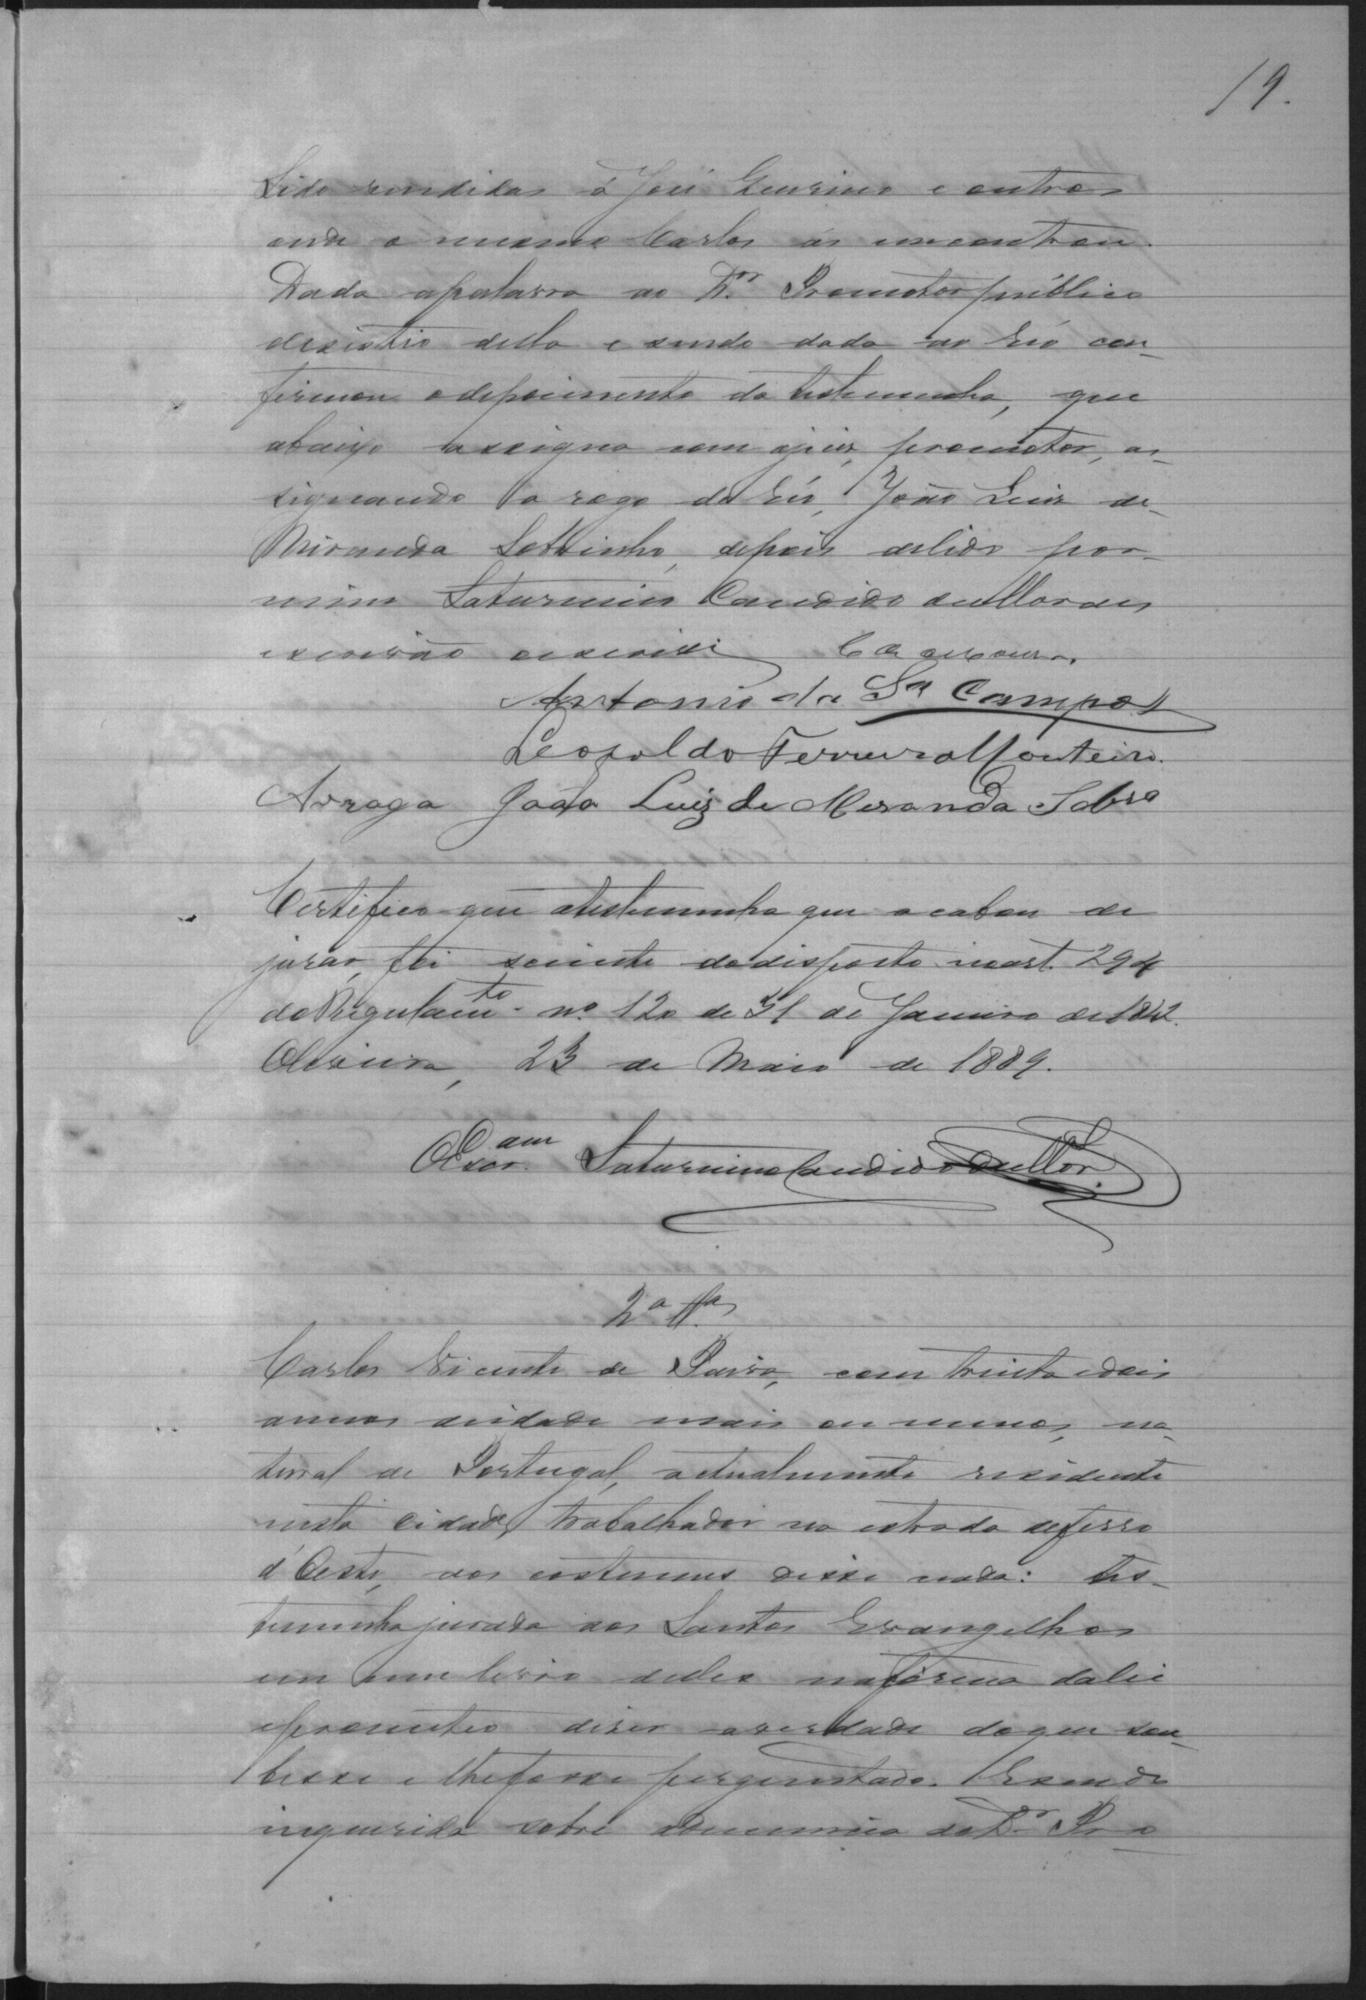 19.
sido vendidas á José Guerino e outros
onde o mesmo Carlos as encontrou.
Dada apalavra ao Dor Promotor publico
desistio della e sendo dada ao réo con-
firmou odepoimento da testemunha, que
abaixo assigna com ojuiz, promotor, as-
signando a rogo do réo, João Luiz de
Miranda Sobrinho, depois delido por
mim Saturnino Candido
escrivão oescrevi
Antonio da Sa Campos
Leopoldo Ferreira Monteiro.
Arrogo João Luiz de Meranda Sobro
Certifico que atestemunha que acabou de
jurar, foi sciente dodisposto noart. 294
do Regulamto no 120 de 31 de Janeiro de 1842.
Oliveira, 23 de Maio de 1889.
Saturnino Candido
2a
Carlos Vicente de Paiva, com trinta edois
annos deidade mais ou menos, na-
tural de Portugal, actualmente residente
nesta cidade, trabalhador na estrada deferro
d'Oeste, aos costumes disse nada: tes-
temunha jurada aos Santos Evangelhos
em um livro delles naforma dalei
eprometeo diser averdade doque sou-
besse e lhefosse perguntado. Esendo
inquerida sobre adenuncia do Dr Pro